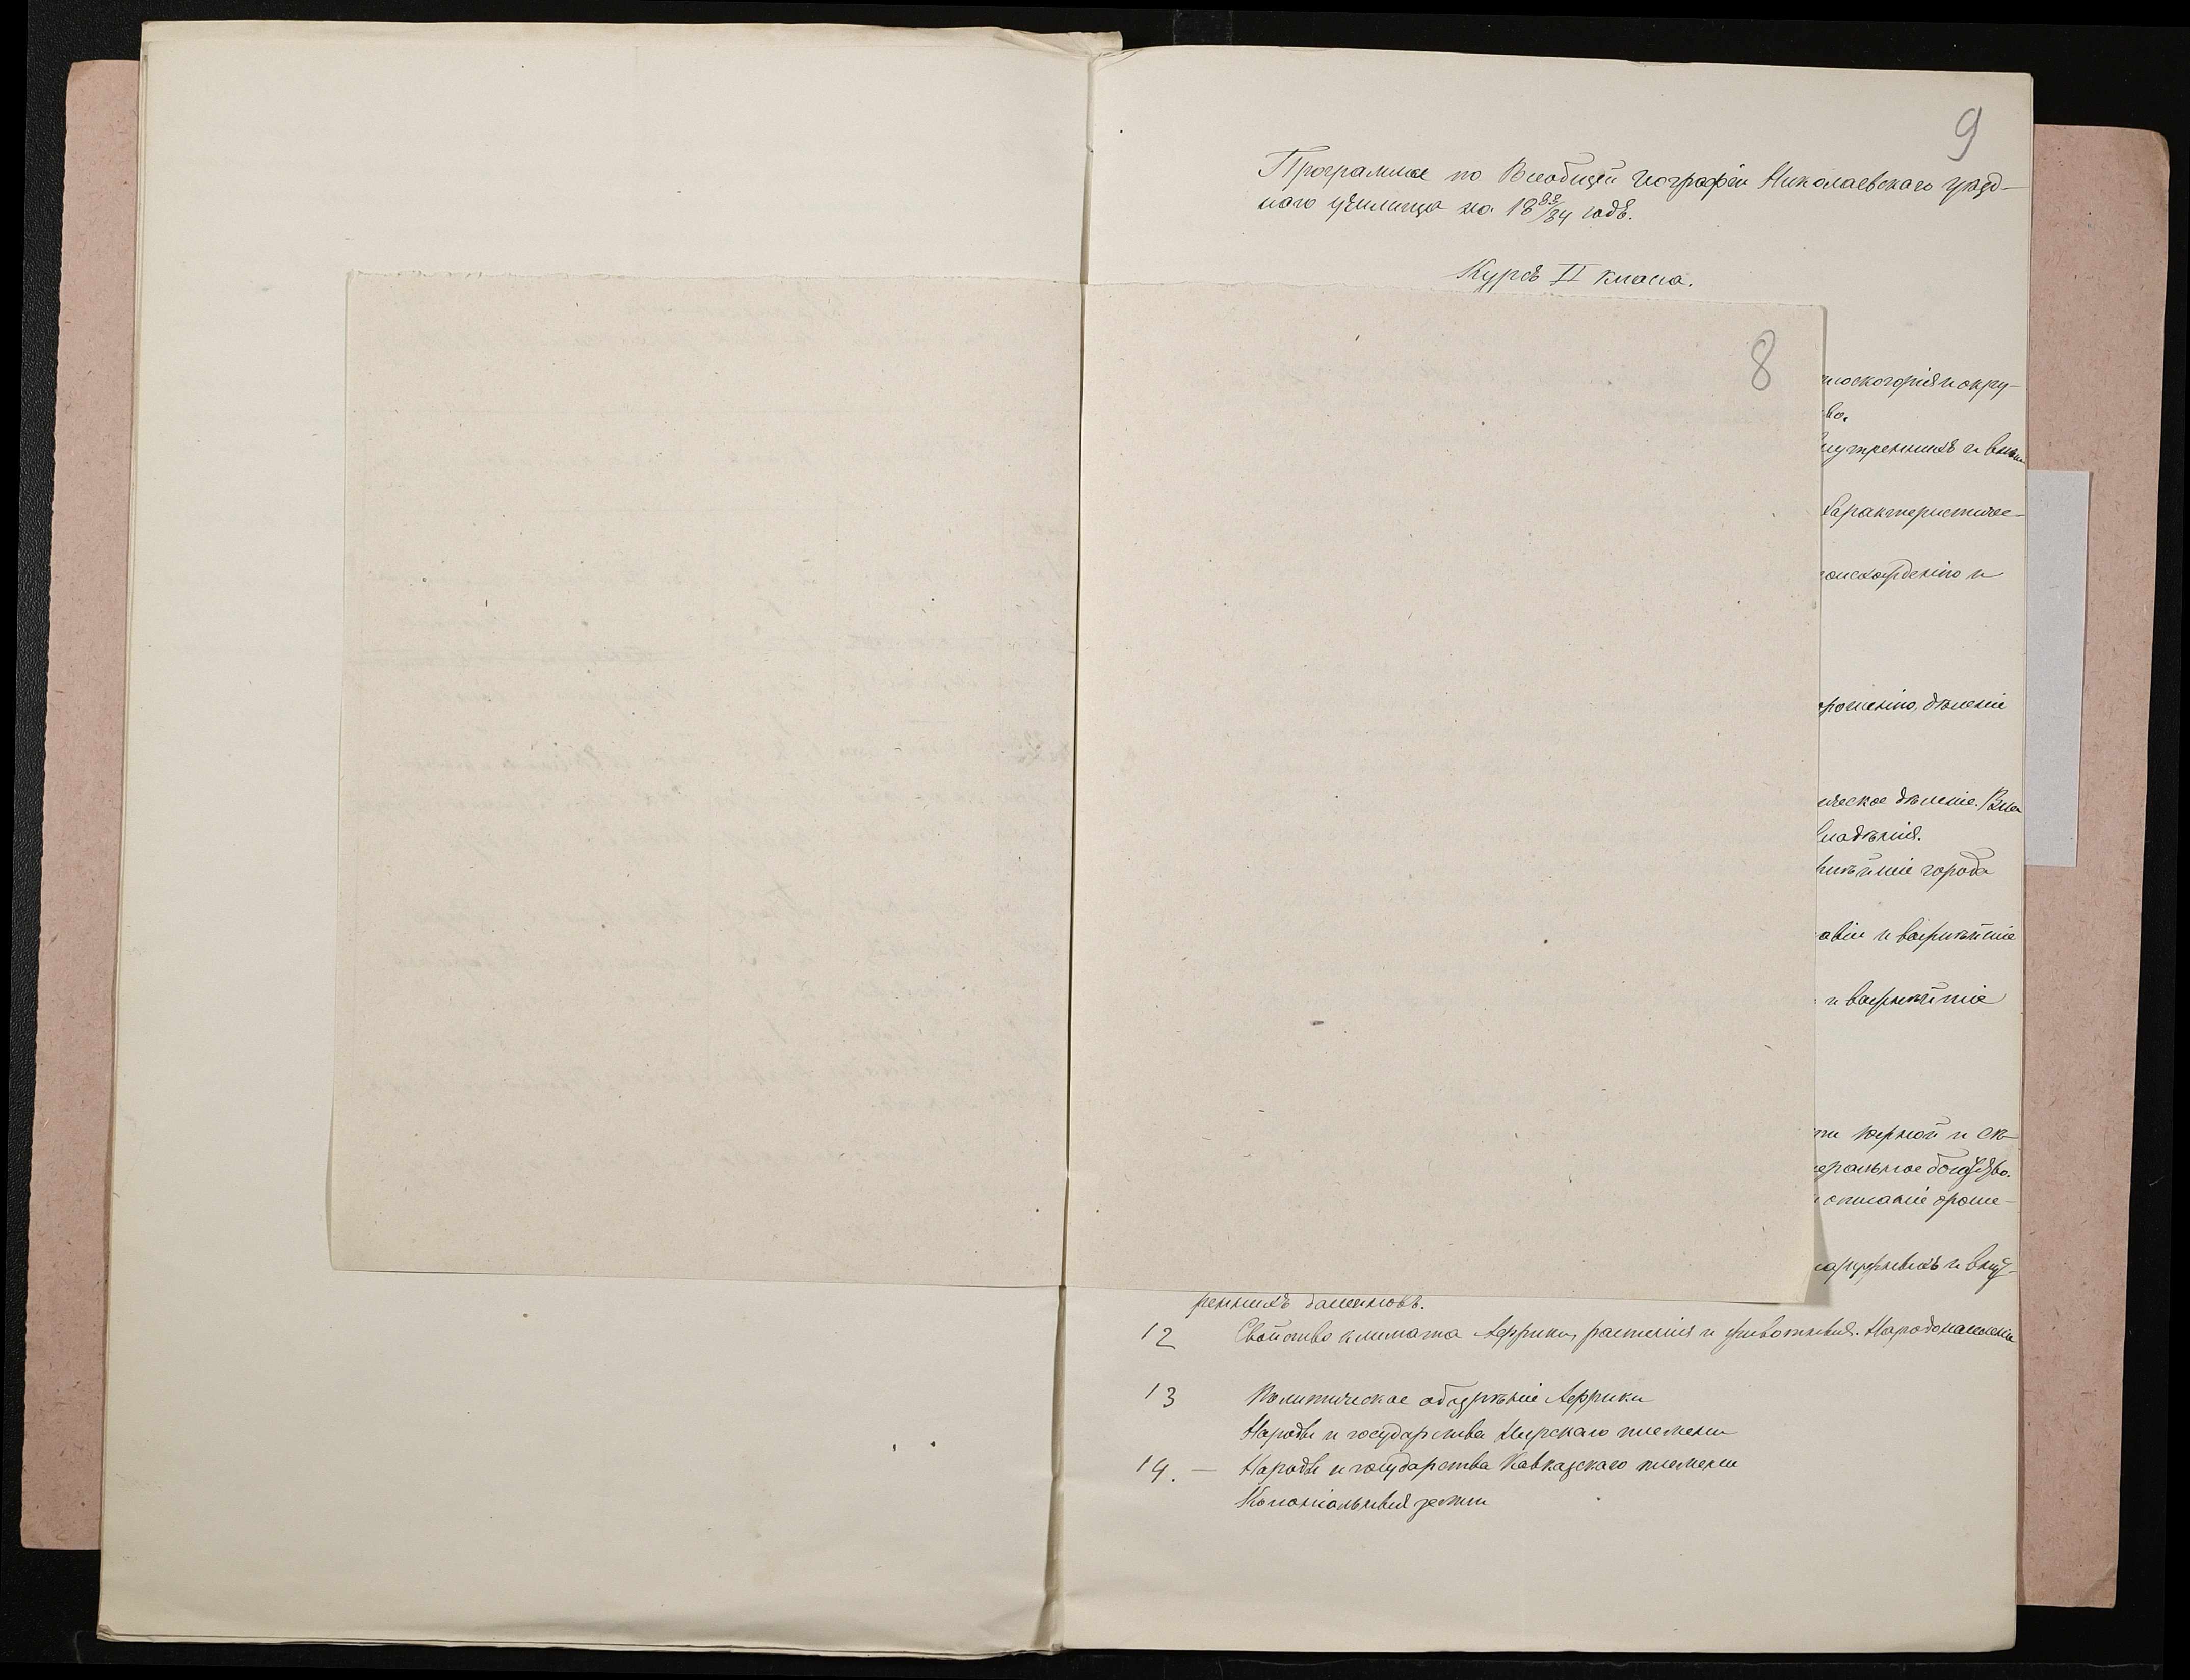 9
Программа по Всеобщей Географіи Николаевскаго уѣзд-
наго училища на 18 83/84 годъ.
Курсъ II класса.
8
плоскогорія и окру-
ва.
внутреннихъ и внѣш
характеристиче-
происхожденію и
орошенію, дѣленіе
ическое дѣленіе.
владѣнія.
города
и важнѣйшіе
и важнѣйшіе
черной и
еральное богатство.
описаніе ороше-
наружныхъ и внут-
реннихъ бассеиновъ.
12 Свойство климата Африки, растенія и животныя. Народонаселеніе
13 Политическое обозрѣніе Африки
Народы и государства Негрскаго племени
14. — Народы и государства Кавказскаго племени
Колоніальныя земли